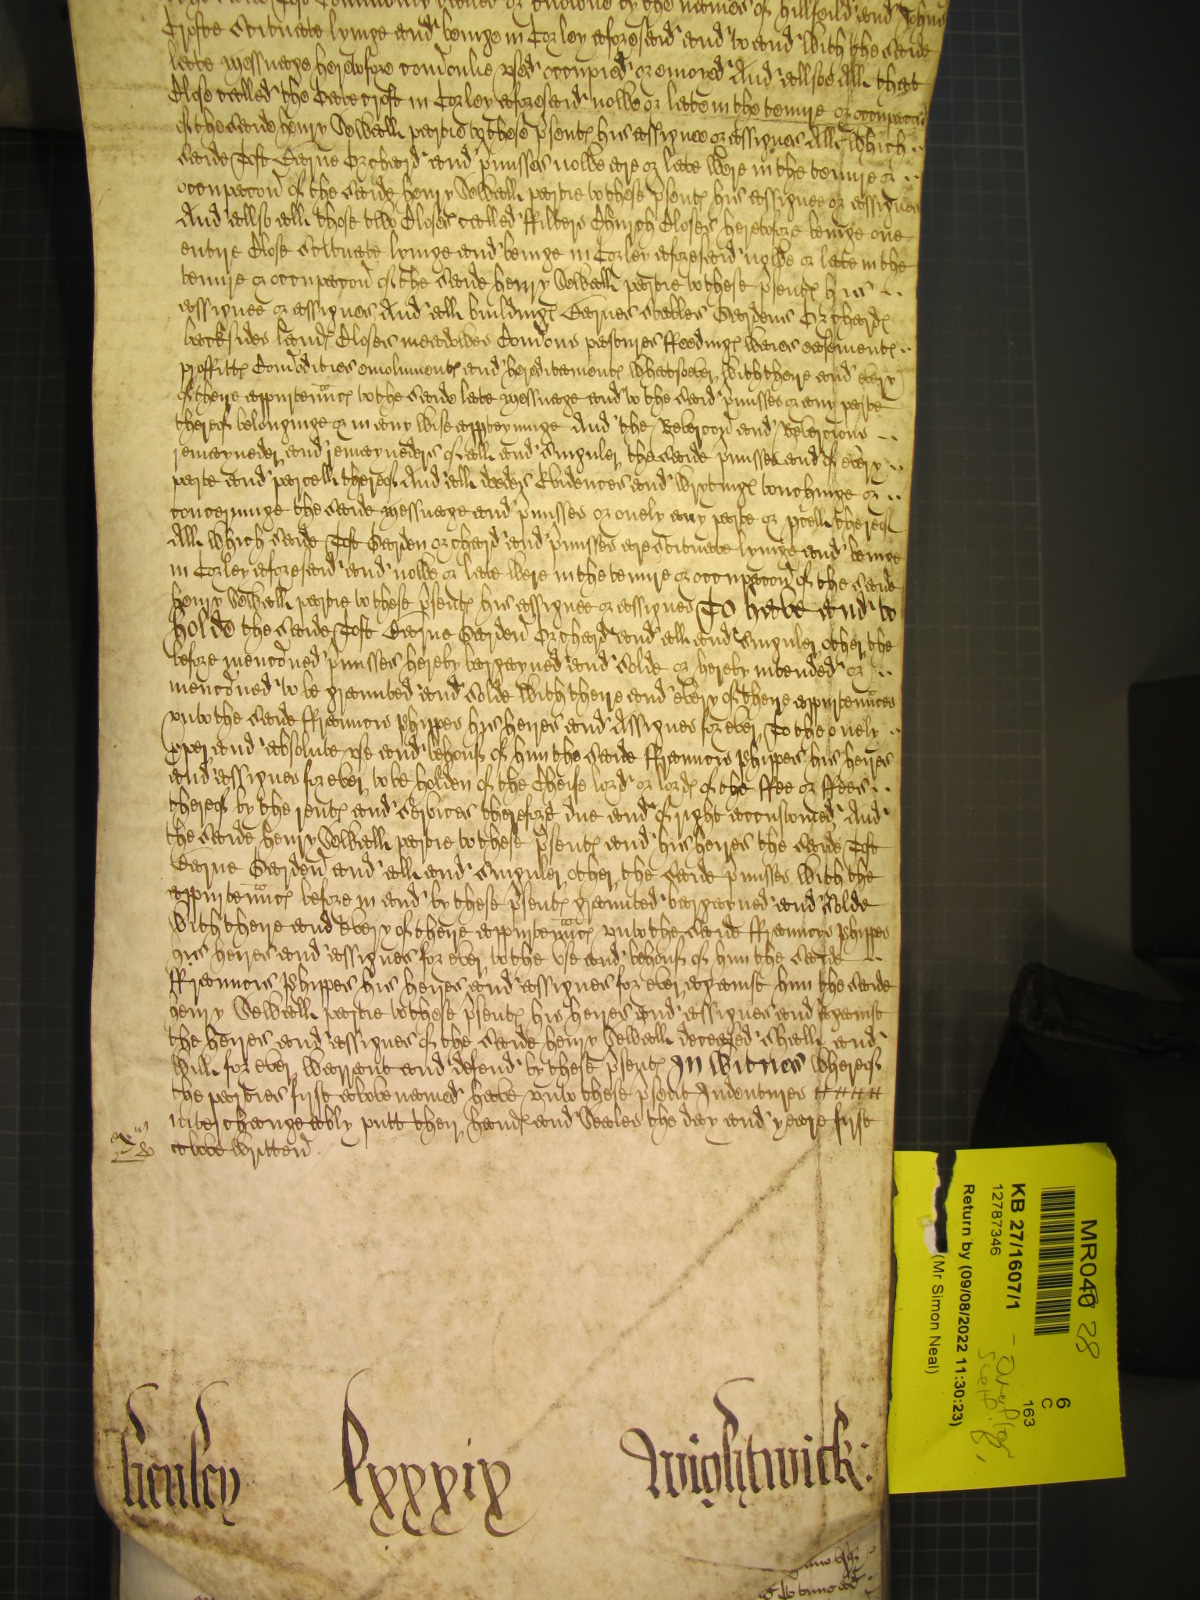 Crofte Scituate lyinge and beinge in Corley aforesaid and to and with the saide
late messuage heretofore comonlie vsed occupied or enioyed And allsoe All that
Close called the Barecroft in Corley aforesaid nowe or late in the tenure or occupacon
of the saide henry Sewall partie to these psents his assignee or assignes All which
saide Toft Barne Orchard and pmisses nowe are or late were in the tenure or
occupacon of the saide henry Sewall partie to these psents his assignee or assignes
And allso all those two Closes called ffilters Church Closes heretofore beinge one
entire Close Scituate lyinge and beinge in Corley aforesaid nowe or late in the
tenure or occupacon of the saide henry Sewall partie to these psents his
assignee or assignes And all buildings Barnes Stables Gardens Orchards
backsides lands Closes meadowes Comons pastures ffeedings waies easements
proffitts Comodities emoluments and hereditaments whatsoever with theire and every
of theire appurtenncs to the saide late messuage and to the said pmisses or any parte
thereof belonginge or in any wise apperteyninge And the Revercon and Revercions
remaynder and remaynders of all and singuler the saide pmisses and of every
parte and parcell thereof And all deedes Evidences and wrytings touchinge or
concerninge the saide messuage and pmisses or onely any parte or pcell thereof
All which saide Toft Garden orchard and pmisses are Scituate lyinge and beinge
in Corley aforesaid and nowe or late were in the tenure or occupacon of the saide
henry Sewall partie to these psents his assignee or assignes To have and to
holde the saide Toft Barne Garden Orchard and all and singuler other the
before menconed pmisses hereby bargayned and solde or hereby intended or
menconed to be graunted and solde with theire and every of theire appurtennces
vnto the saide ffrauncis Phippes his heires and Assignes for ever To the onely
pper and absolute vse and behouf of him the saide ffrauncis Phippes his heires
and assignes for ever to be holden of the Cheife lord or lords of the ffee or ffees
thereof by the rents and services therefore due and of right accustomed And
the saide henry Sewall partie to these psents and his heires the saide Toft
Barne Garden and all and singuler other the saide pmisses with the
appurtenncs before in and by these psents graunted bargayned and solde
with theire and every of theire appurtenncs vnto the saide ffrauncis Phippes
his heires and assignes for ever to the vse and behouf of him the saide
ffrauncis Phippes his heires and assignes for ever against him the saide
henry Sewall partie to these psents his heires and assignes and against
the heires and assignes of the saide henry Sewall deceased shall and
will for ever warrant and defend by these psents In witnes whereof
the parties first above named have vnto these psent Indentures
interchangeably putt their hands and Seales the day and yeare first
above written
henley lxxxix Wightwick:
MR040 28
KB 27/1607/1
12787346
Return by (09/08/2022 11:30:23)
(Mr Simon Neal)
6
C
163